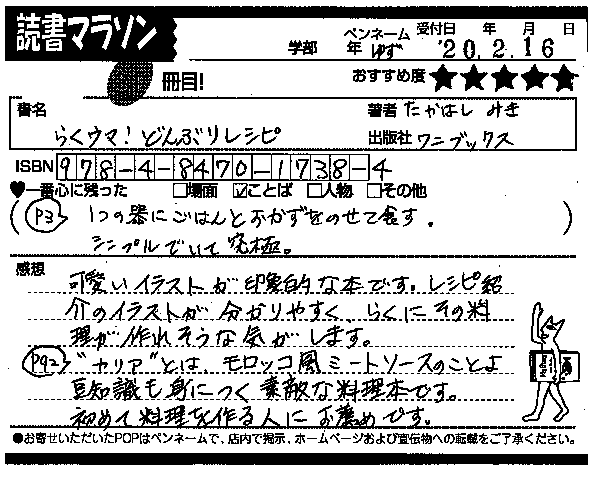 読書マラソン
冊目!
学部 年 ペンネーム ゆず 受付日 年 月 日
'20.2.16
おすすめ度 ★★★★★
書名 らくウマ!どんぶりレシピ
著者 たかはし みき
出版社 ワニブックス
ISBN 978-4-8470-1738-4
♥一番心に残った □場面 ☑ことば □人物 □その他
(P3) 1つの器にごはんとおかずをのせて食す。
シンプルでいて究極。
感想
可愛いイラストが印象的な本です。レシピ紹
介のイラストが分かりやすく、らくにその料
理が作れそうな気がします。
(P92)"カリア"とは、モロッコ風ミートソースのことよ
豆知識も身につく素敵な料理本です。
初めて料理を作る人にお薦めです。
●お寄せいただいたPOPはペンネームで、店内で掲示、ホームページおよび宣伝物への転載をご了承ください。